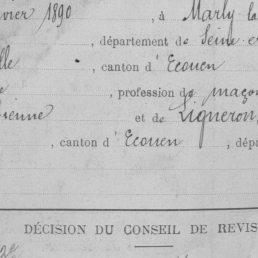 vrier 1890, à Marly-la
, département de Seine-e
lle, canton d'Ecouen
e, profession de maçon
ienne et de Ligneron,
, canton d'Ecouen, dép
DÉCISION DU CONSEIL DE REVIS